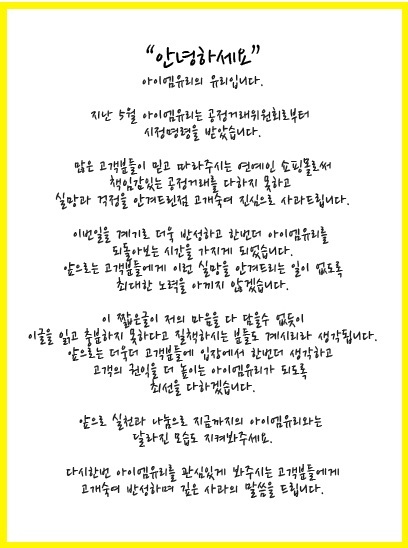 “안녕하세요”
아이엠유리의 유리입니다.
지난 5월 아이엠유리는 공정거래위원회로부터
시정명령을 받았습니다.
많은 고객분들이 믿고 따라주시는 연예인 쇼핑몰로써
책임감있는 공정거래를 다하지 못하고
실망과 걱정을 안겨드린점 고개숙여 진심으로 사과드립니다.
이번일을 계기로 더욱 반성하고 한번더 아이엠유리를
되돌아보는 시간을 가지게 되었습니다.
앞으로는 고객분들에게 이런 실망을 안겨드리는 일이 없도록
최대한 노력을 아끼지 않겠습니다.
이 짧은글이 저의 마음을 다 담을수 없듯이
이글을 읽고 충분하지 못하다고 질책하시는 분들도 계시리라 생각됩니다.
앞으로는 더욱더 고객분들에 입장에서 한번더 생각하고
고객의 권익을 더 높이는 아이엠유리가 되도록
최선을 다하겠습니다.
앞으로 실천과 나눔으로 지금까지의 아이엠유리와는
달라진 모습도 지켜봐주세요.
다시한번 아이엠유리를 관심있게 봐주시는 고객분들에게
고개숙여 반성하며 깊은 사과의 말씀을 드립니다.